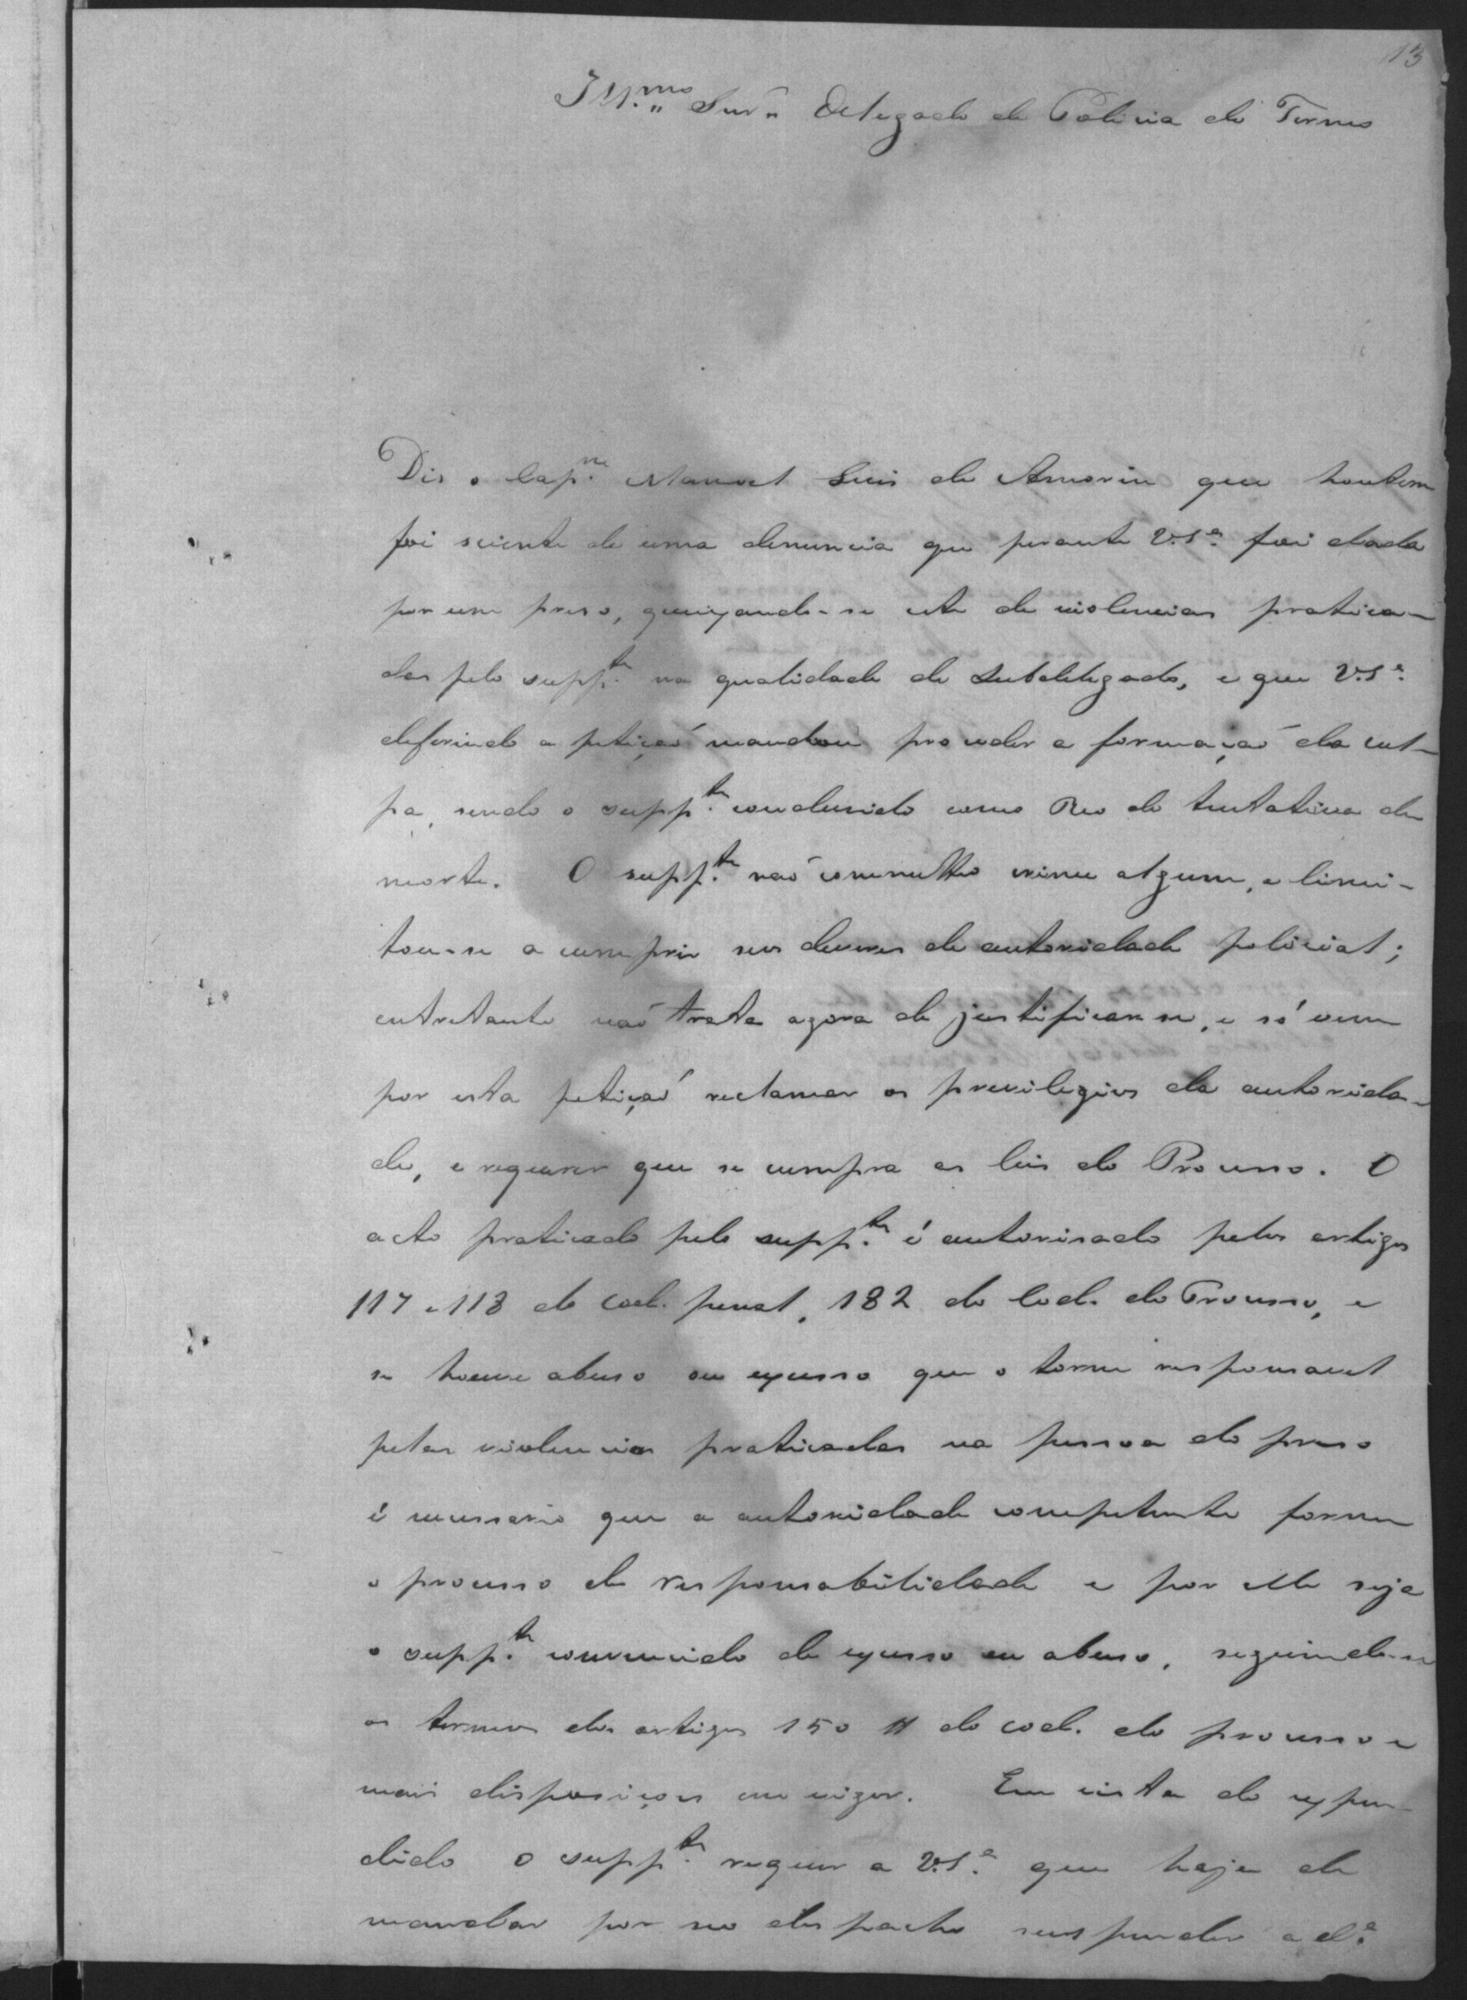 13
Illmo. Snr. Delegado de Policia do Termo
Diz o Capm. Manoel Luis de Amorim que hontem
foi sciente de uma denuncia que perante V.Sa. foi dada
por um preso, queixando-se este de violencias pratica-
das pelo suppte. na qualidade de Subdelegado, e que V.Sa.
deferindo a petiçaõ mandou proceder a formaçaõ da cul-
pa, sendo o suppte. considerado como Reo de tentativa de
morte. O suppte. naõ commetteo crime algum, e limi-
tou-se a cumprir seus deveres de autoridade policial;
entretanto naõ trata agora de justificar se, e só vem
por esta petiçaõ reclamar os previlegios da autorida-
de, e requerer que se cumpra as leis do Processo. O
acto praticado pelo suppte. é autorisado pelos artigos
117 e 118 do Cod. penal, 182 do Cod. do Processo, e
se houve abuso ou excesso que o torne responsavel
pelas violencias praticadas na pessoa do preso
é necessario que a autoridade competente forme
o processo de responsabilidade e por elle seja
o suppte. convencido de excesso ou abuso, seguindo-se
os termos dos artigos 150 do cod. do processo e
mais disposiçoes em vigor. Em vista do expen-
dido o suppte. requer a V.Sa. que haja de
mandar por seo despacho suspender a da.